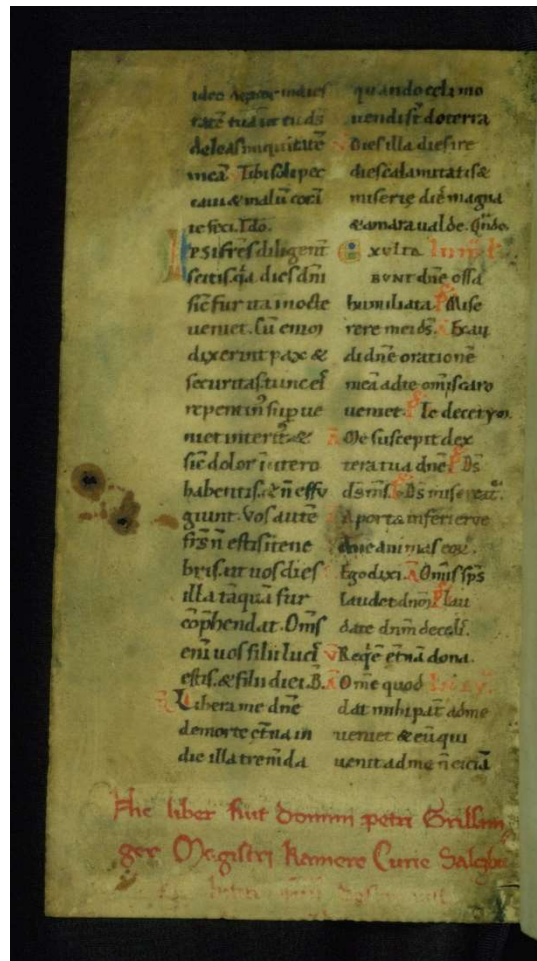 tatē tuā
deleas iniquitatē
meā. Tibi soli pec
caui & malū corā
te feci. Ido.
Ipsi frēs diligent
scitis q̄a dies dn̄i
sic̄ fur ita in nocte
ueniet. Cū enim
dixerint pax &
securitas tunc
repentin supue
niet interit
sic̄ dolor in utero
habentis. & n̄ effu
giunt. Vos autē
frs̄ n̄ estis in tene
bris. ut uos dies
illa tāquā fur
cōp̄hendat. Om̄s
eni uos filii luci
estis. & filii diei. B.
Libera me dn̄e
de morte et̄na in
die illa trem̄da
quando celi mo
uendi st̄ & terra
Dies illa dies ire
dies calamitatis &
miserie dies magna
& amara ualde. Qn̄do.
Exulta
BUNT dn̄e ossa
humiliata. Mise
rere mei ds̄. Exau
di dn̄e orationē
meā ad te om̄is caro
ueniet. Te decet ym̄.
Me suscepit dex
tera tua dn̄e. Ds̄
ds̄ ms̄. Ds̄ misereat̄.
A porta inferi erue
dn̄e animas eoꝝ.
Ego dixi. Om̄is sps̄
laudet dn̄m Lau
date dn̄m de cel.
Req̄e et̄nā dona.
Om̄e quod
dat mihi pat̄ ad me
ueniet & eū qui
uenit ad me n̄ eiciā
Hic liber fuit domini petri Grillin
ger Magistri kamere Curie Salczb